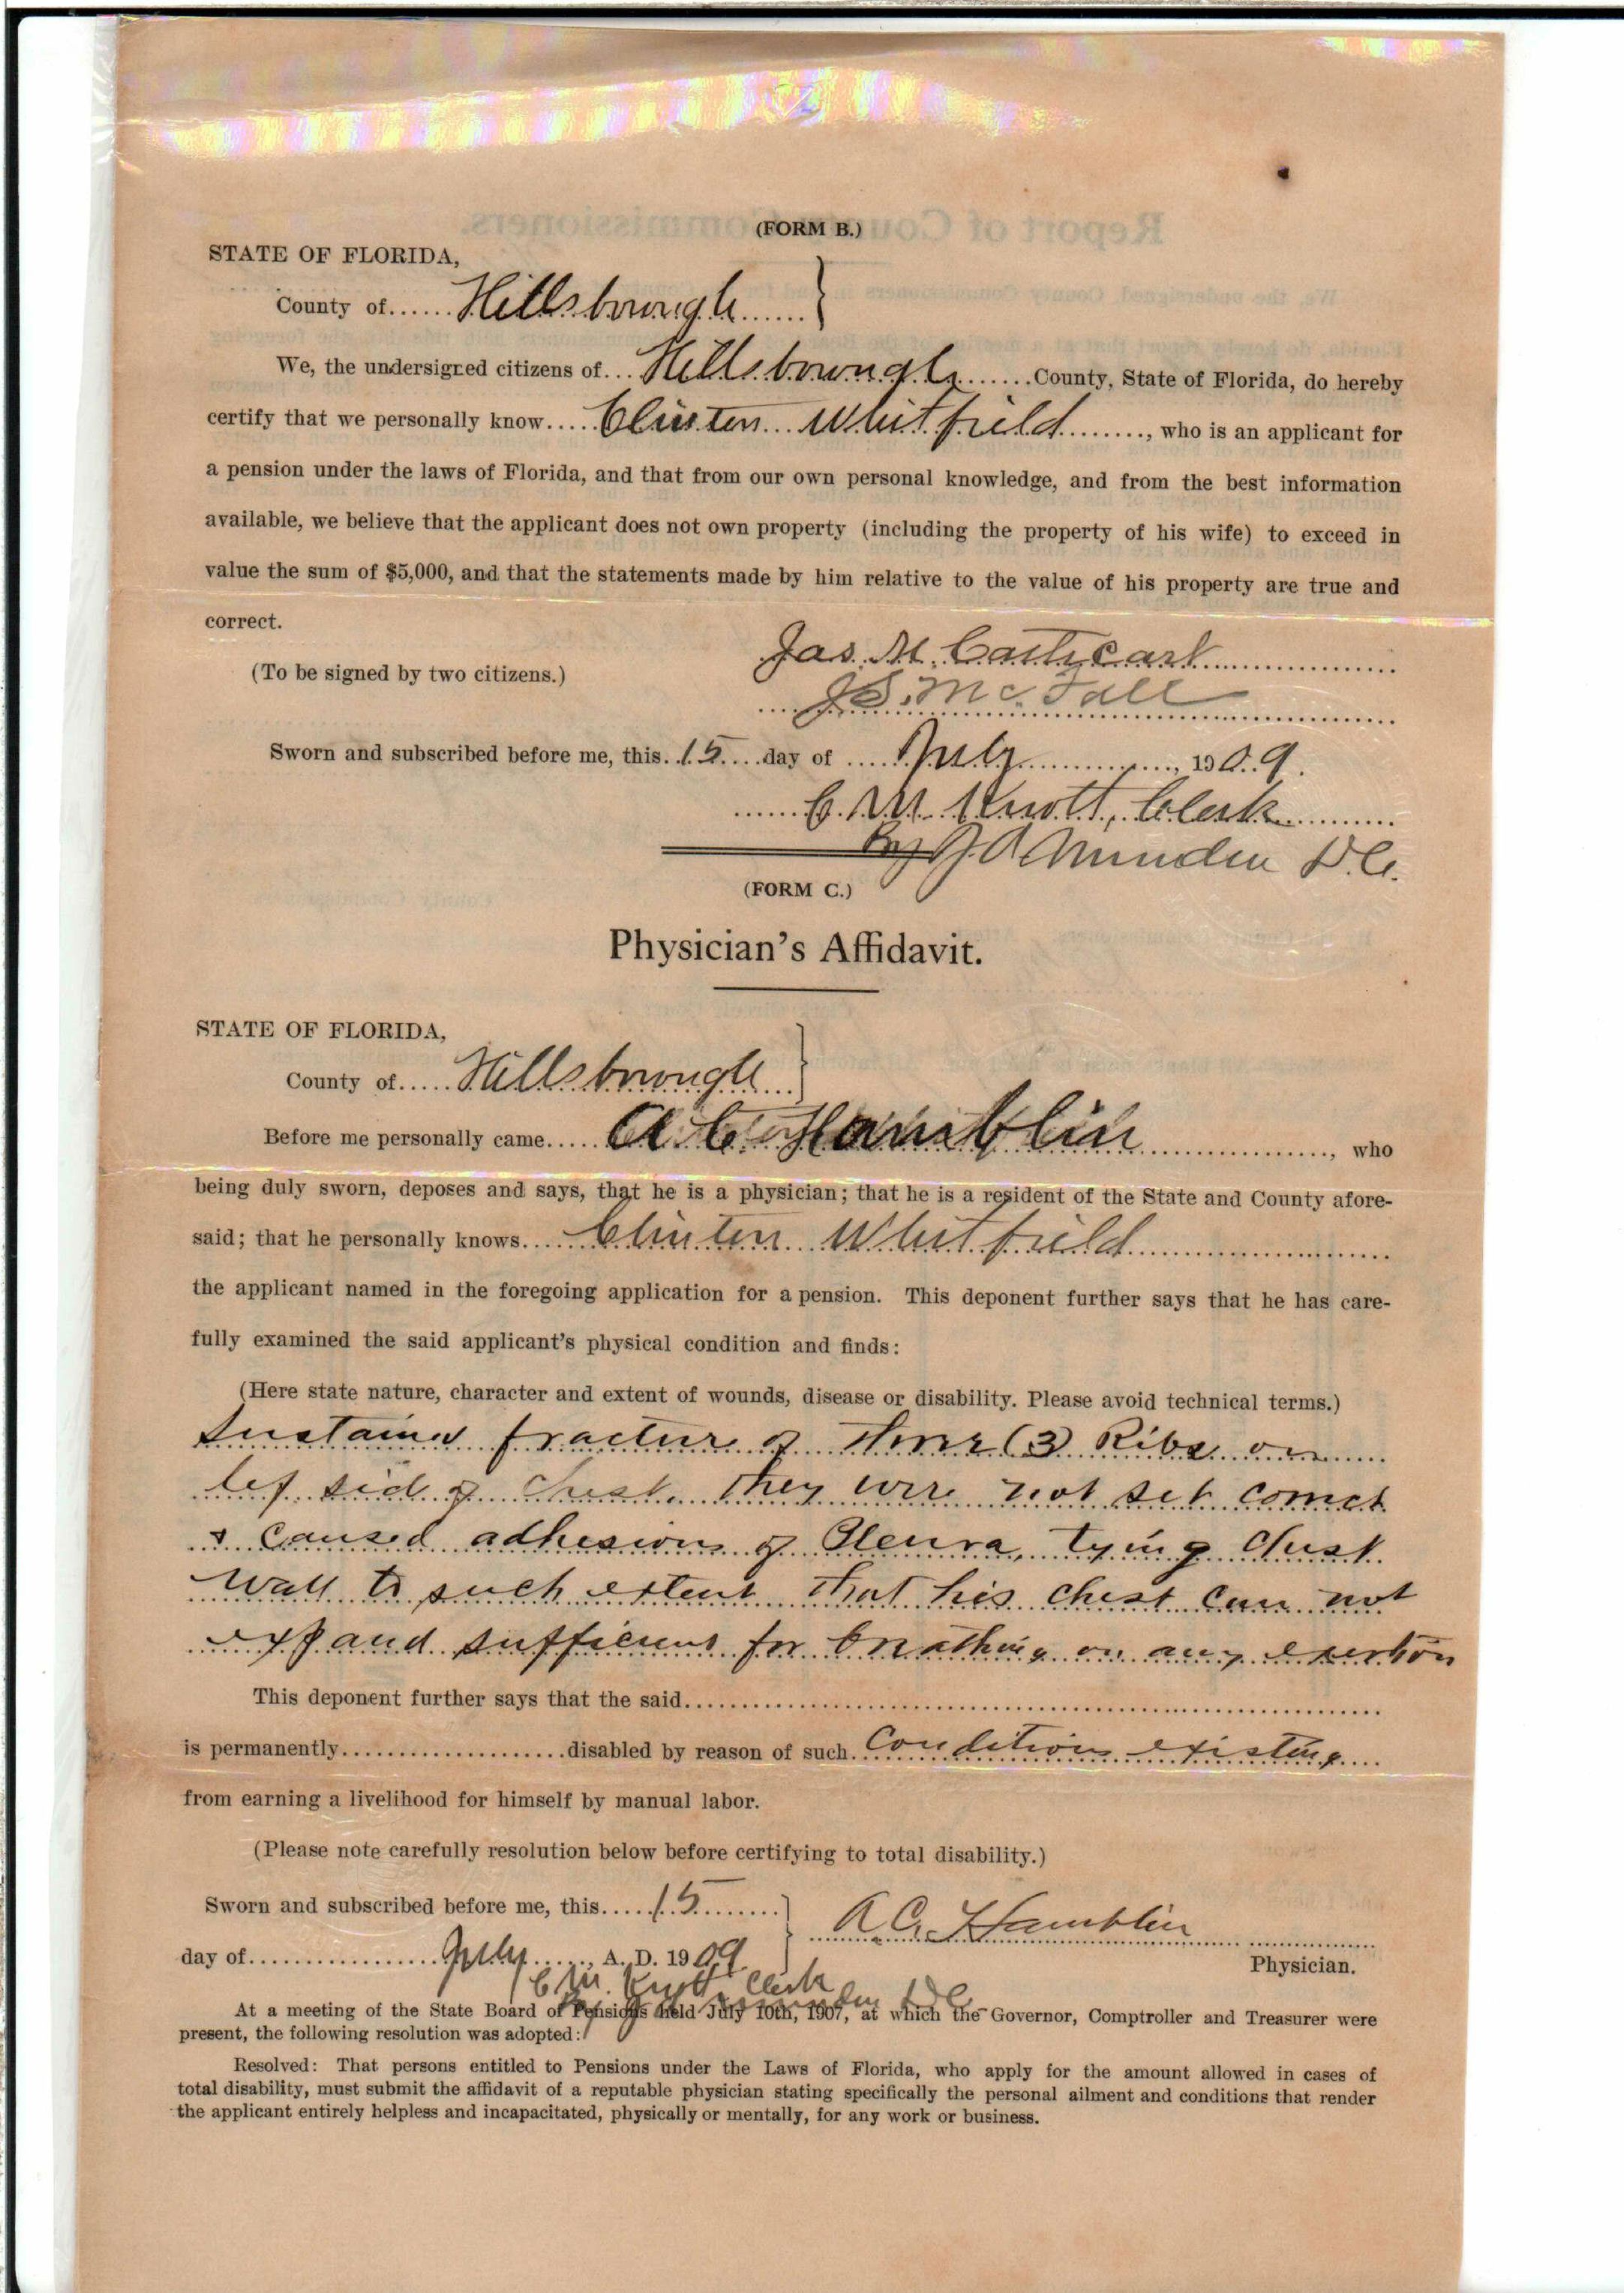 (FORM B.)
STATE OF FLORIDA,
County of Hillsborough
We, the undersigned citizens of Hillsborough County, State of Florida, do hereby
certify that we personally know Clinton Whitfield, who is an applicant for
a pension under the laws of Florida, and that from our own personal knowledge, and from the best information
available, we believe that the applicant does not own property (including the property of his wife) to exceed in
value the sum of $5,000, and that the statements made by him relative to the value of his property are true and
correct.
Jas. M. Cathcart
(To be signed by two citizens.)
J.S. McFall
Sworn and subscribed before me, this 15 day of July, 1909.
C. M. Knott, Clerk
By D.C.
(FORM C.)
Physician's Affidavit.
STATE OF FLORIDA,
County of Hillsborough
Before me personally came A C Hamblin, who
being duly sworn, deposes and says, that he is a physician; that he is a resident of the State and County afore-
said; that he personally knows Clinton Whitfield
the applicant named in the foregoing application for a pension. This deponent further says that he has care-
fully examined the said applicant's physical condition and finds:
(Here state nature, character and extent of wounds, disease or disability. Please avoid technical terms.)
Sustained fracture of three (3) Ribs on
lef sid of Chest. They were not set correct
& caused adhesions of Pleura, tying Chest
wall to such extent that his chest can not
expand sufficient for breathing on any exertion
This deponent further says that the said
is permanently disabled by reason of such Conditions existing
from earning a livelihood for himself by manual labor.
(Please note carefully resolution below before certifying to total disability.)
Sworn and subscribed before me, this 15
A.C. Hamblin
day of July, A. D. 1909
Physician.
C. M. Knott Clerk
By D.C.
At a meeting of the State Board of Pensions held July 10th, 1907, at which the Governor, Comptroller and Treasurer were
present, the following resolution was adopted:
Resolved: That persons entitled to Pensions under the Laws of Florida, who apply for the amount allowed in cases of
total disability, must submit the affidavit of a reputable physician stating specifically the personal ailment and conditions that render
the applicant entirely helpless and incapacitated, physically or mentally, for any work or business.